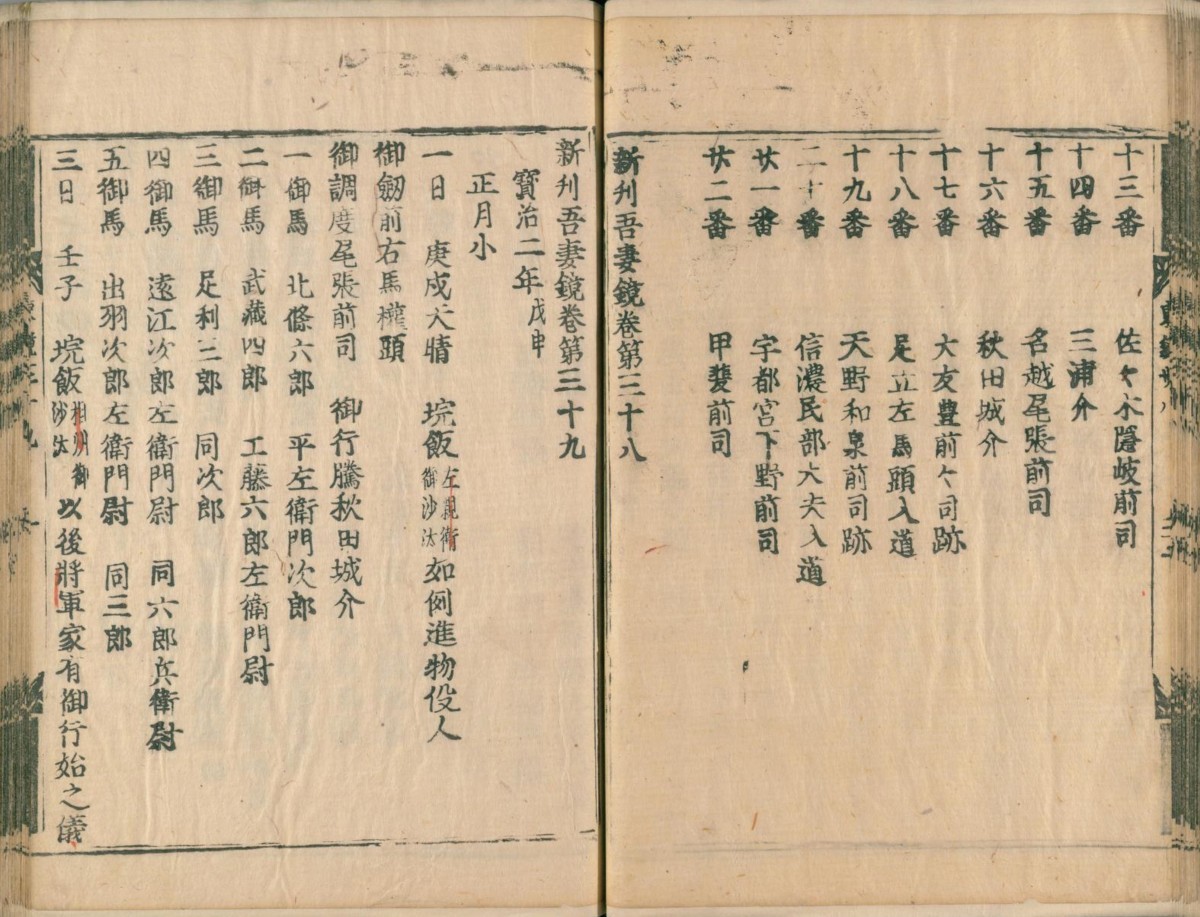 十三番 佐々木隱岐前司
十四番 三浦介
十五番 名越尾張前司
十六番 秋田城介
十七番 大友豊前々司跡
十八番 足立左馬頭入道
十九番 天野和泉前司跡
二十番 信濃民部大夫入道
廿一番 宇都宮下野前司
廿二番 甲斐前司
新刊吾妻鏡卷第三十八
新刊吾妻鏡卷第三十九
寳治二年戊申
正月小
一日 庚戌天晴 垸飯左親衛御沙汰如例進物役人
御劔前右馬權頭
御調度尾張前司 御行騰秋田城介
一御馬 北條六郎 平左衛門次郎
二御馬 武藏四郎 工藤六郎左衛門尉
三御馬 足利三郎 同次郎
四御馬 遠江次郎左衛門尉 同六郎兵衛尉
五御馬 出羽次郎左衛門尉 同三郎
三日 壬子 垸飯相州御沙汰以後將軍家有御行始之儀